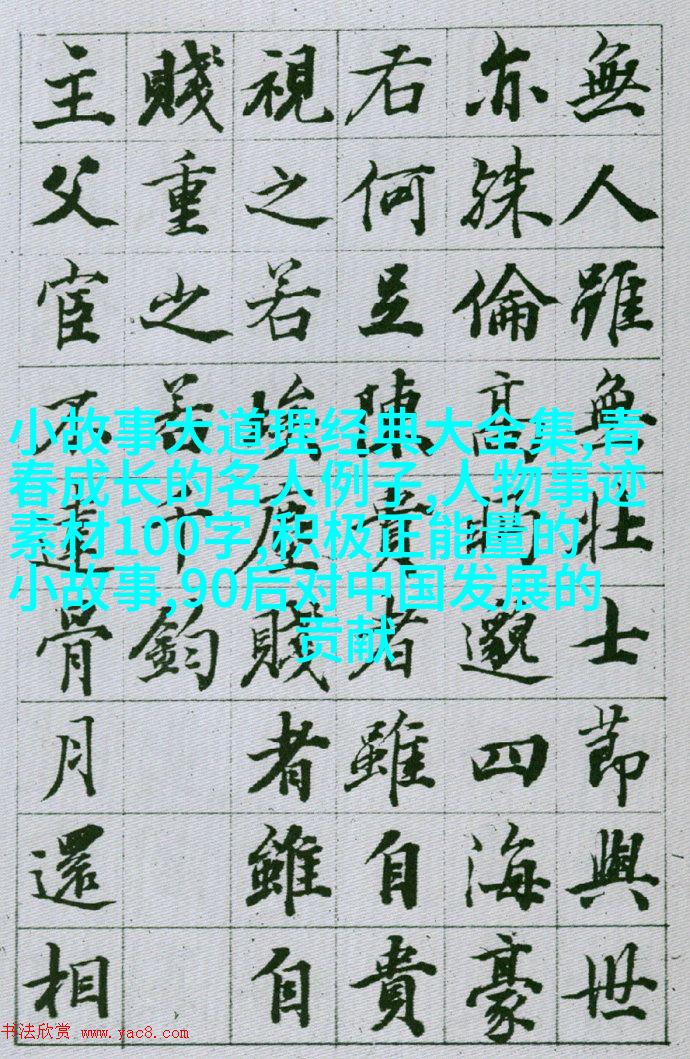 無人雖無壯士節與世
亦殊倫高眄邈四海豪
右何足陳貴者雖自貴
視之若埃塵賤者雖自
賤重之若千鈞
主父宦不達骨月還相
小故事大道理经典大全集,青
春成长的名人例子,人物事迹
素材100字,积极正能量的
小故事,90后对中国发展的
贡献
书法欣赏 www.yac8.com